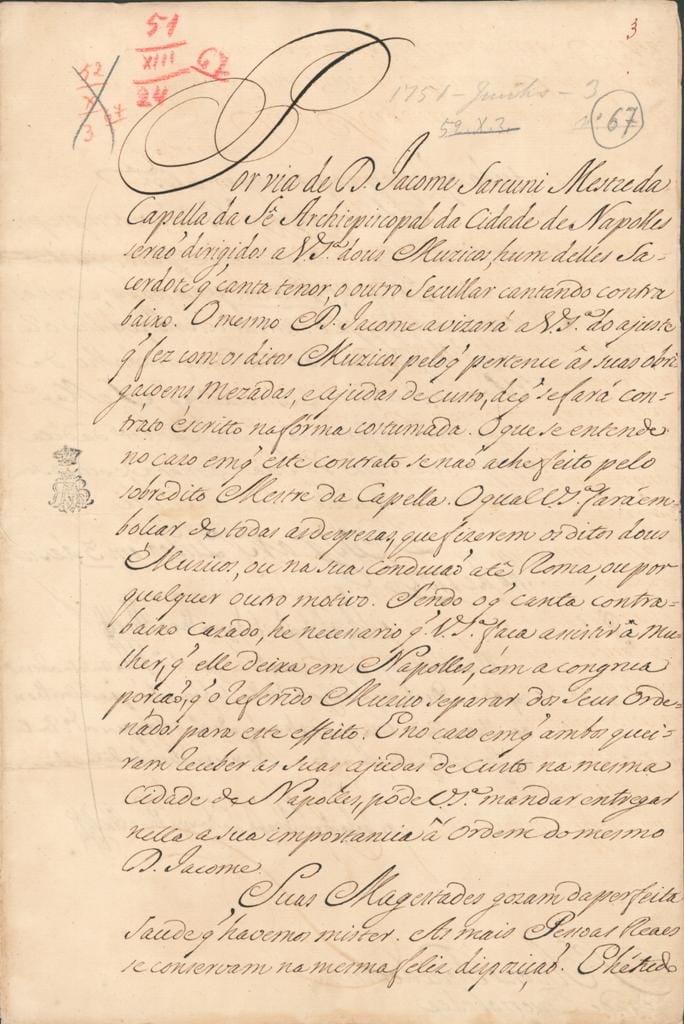 3
51
XIII
24
67
52
X
3
67
1751 - Junho - 3
52.X.3
nº 67
Por via de D. Jacome Sarcuni Mestre da
Capella da Sé Archiepiscopal da Cidade de Napolles
seraõ dirigidos a V.S.ª dous Muzicos, hum delles Sa-
cerdote q' canta tenor, o outro Secullar cantando contra
baixo. O mesmo D. Jacome avizará a V.S.ª do ajuste
q' fez com os ditos Muzicos pelo q' pertence âs suas obri
gacoens Mezadas, e ajudas de custo, de q' se fará con-
trato escritto na forma costumada. O que se entende
no cazo em q' este contrato se naõ ache feito pelo
sobredito Mestre da Capella. O qual V.S.ª fará em-
bolcar de todas as despezas, que fizerem os ditos dous
Muzicos, ou na sua conduçaõ até Roma, ou por
qualquer outro motivo. Sendo o q' canta contra-
baixo cazado, he necessario q' V.S.ª faca assistir â mu-
lher, q' elle deixa em Napolles, com a congrua
porcaõ, q' o referido Muzico separar dos seus Orde-
nados para este effeito. E no cazo em q' ambos quei-
ram receber as suas ajudas de custo na mesma
Cidade de Napolles, pode V.S.ª mandar entregar
nella a sua importancia â ordem do mesmo
D. Jacome.
Suas Magestades gozam da perfeita
saude q' havemos mister. As mais Pessoas Reaes
se conservam na mesma feliz dispoziçaõ. E hé tudo